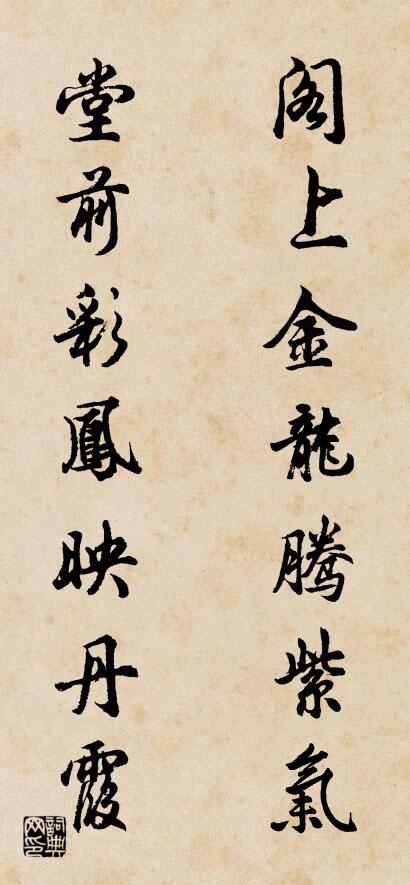 阁上金龍騰紫氣
堂前彩鳳映丹霞
詞典网印